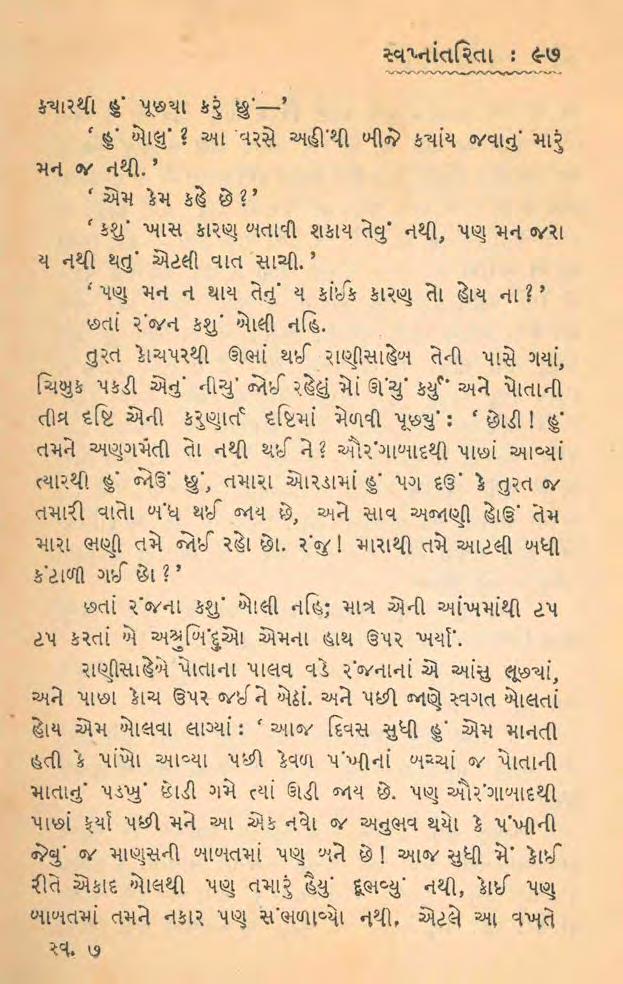 સ્વપ્નાંતરિતા : ૯૭
ક્યારથી હું પૂછ્યા કરું છું—’
‘ હું બોલું ? આ વરસે અહીંથી બીજે ક્યાંય જવાનું મારું
મન જ નથી. ’
‘ એમ કેમ કહે છે ?’
‘ કશું ખાસ કારણ બતાવી શકાય તેવું નથી, પણ મન જરા
ય નથી થતું એટલી વાત સાચી. ’
‘ પણ મન ન થાય તેનું ય કાંઈક કારણ તો હોય ના ? ’
છતાં રંજન કશું બોલી નહિ.
તુરત કોચપરથી ઊભાં થઈ રાણીસાહેબ તેની પાસે ગયાં,
ચિબુક પકડી એનું નીચું જોઈ રહેલું મોં ઊંચું કર્યું અને પોતાની
તીવ્ર દૃષ્ટિ એની કરુણાર્ત દૃષ્ટિમાં મેળવી પૂછ્યું : ‘ છોડી ! હું
તમને અણગમતી તો નથી થઈ ને ? ઔરંગાબાદથી પાછાં આવ્યાં
ત્યારથી હું જોઉં છું, તમારા ઓરડામાં હું પગ દઉં કે તુરત જ
તમારી વાતો બંધ થઈ જાય છે, અને સાવ અજાણી હોઉં તેમ
મારા ભણી તમે જોઈ રહો છો. રંજુ ! મારાથી તમે આટલી બધી
કંટાળી ગઈ છો ? ’
છતાં રંજના કશું બોલી નહિ; માત્ર એની આંખમાંથી ટપ
ટપ કરતાં બે અશ્રુબિંદુઓ એમના હાથ ઉપર ખર્યાં.
રાણીસાહેબે પોતાના પાલવ વડે રંજનાનાં એ આંસુ લૂછ્યાં,
અને પાછા કોચ ઉપર જઈને બેઠાં. અને પછી જાણે સ્વગત બોલતાં
હોય એમ બોલવા લાગ્યાં : ‘ આજ દિવસ સુધી હું એમ માનતી
હતી કે પાંખો આવ્યા પછી કેવળ પંખીનાં બચ્ચાં જ પોતાની
માતાનું પડખું છોડી ગમે ત્યાં ઊડી જાય છે. પણ ઔરંગાબાદથી
પાછાં ફર્યા પછી મને આ એક નવો જ અનુભવ થયો કે પંખીની
જેવું જ માણસની બાબતમાં પણ બને છે ! આજ સુધી મેં કોઈ
રીતે એકાદ બોલથી પણ તમારું હૈયું દૂભવ્યું નથી, કોઈ પણ
બાબતમાં તમને નકાર પણ સંભળાવ્યો નથી. એટલે આ વખતે
સ્વ. ૭